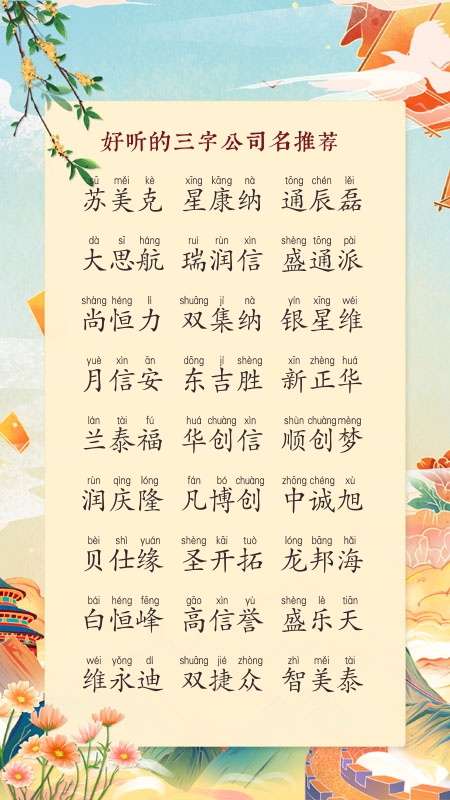 好听的三字公司名推荐
sū měi kè xīng kāng nà tōng chén lěi
苏美克 星康纳 通辰磊
dà sī háng ruì rùn xìn shèng tōng pài
大思航 瑞润信 盛通派
shàng héng lì shuāng jí nà yín xīng wéi
尚恒力 双集纳 银星维
yuè xìn ān dōng jí shèng xīn zhèng huá
月信安 东吉胜 新正华
lán tài fú huá chuàng xìn shùn chuàng mèng
兰泰福 华创信 顺创梦
rùn qìng lóng fán bó chuàng zhōng chéng xù
润庆隆 凡博创 中诚旭
bèi shì yuán shèng kāi tuò lóng bāng hǎi
贝仕缘 圣开拓 龙邦海
bái héng fēng gāo xìn yù shèng lè tiān
白恒峰 高信誉 盛乐天
wéi yǒng dí shuāng jié zhòng zhì měi tài
维永迪 双捷众 智美泰